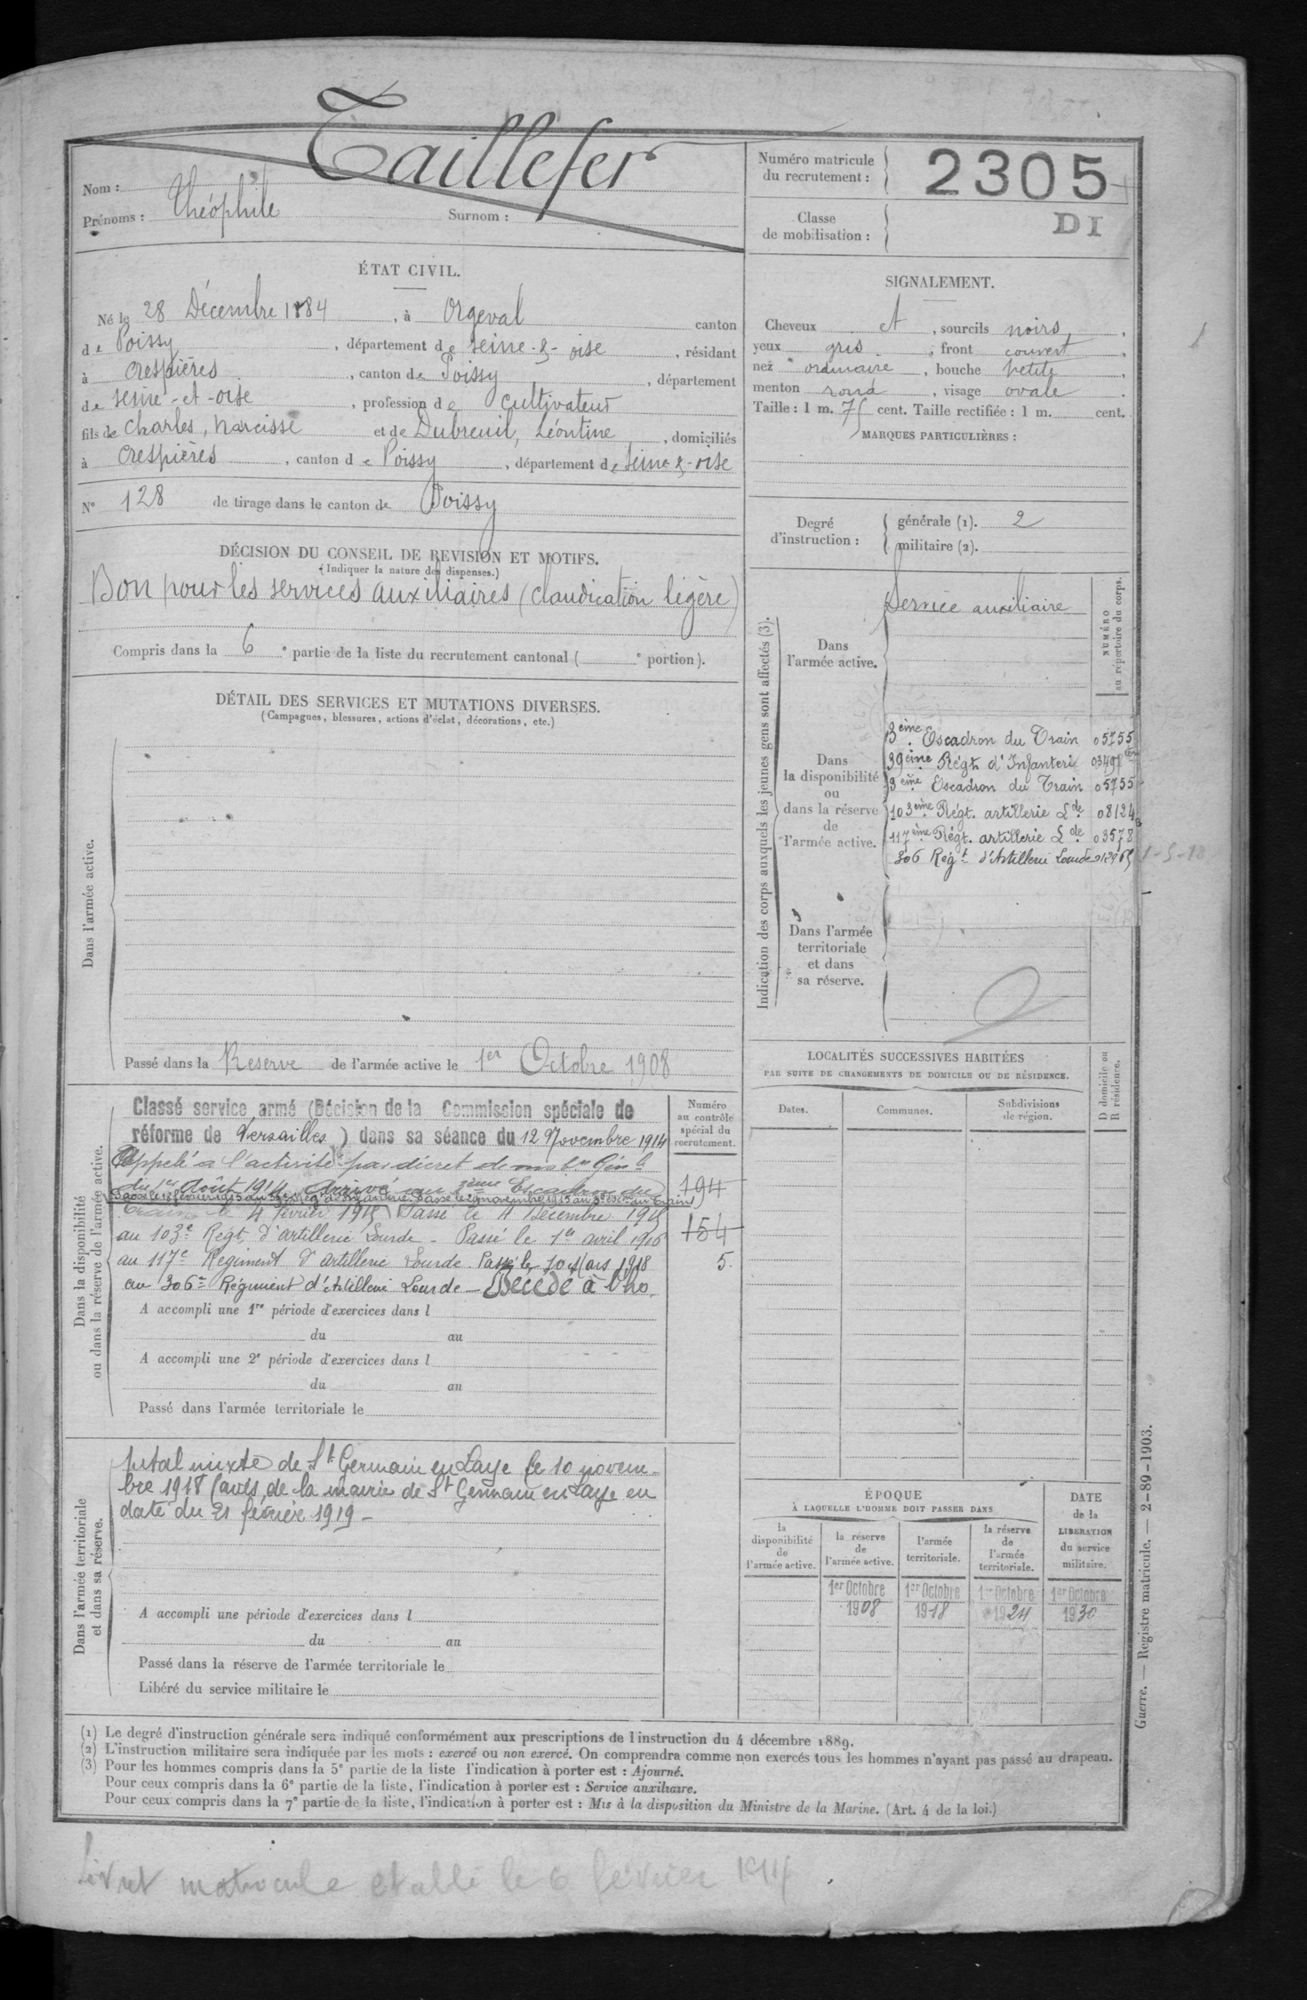 Taillefer
Nom :
Prénoms : Théophile Surnom :
Numéro matricule
du recrutement :
2305
Classe
de mobilisation :
DI
ÉTAT CIVIL.
Né le 28 Décembre 1884, à Orgeval canton
de Poissy, département de Seine-&-oise, résidant
à Crespières, canton de Poissy, département
de Seine-et-oise, profession de Cultivateur
fils de Charles, Narcisse et de Dubreuil, Léontine, domiciliés
à Crespières, canton de Poissy, département de Seine-&-oise
N° 128 de tirage dans le canton de Poissy
DÉCISION DU CONSEIL DE REVISION ET MOTIFS.
(Indiquer la nature des dispenses.)
Bon pour les services auxiliaires (claudication légère)
Compris dans la 6e partie de la liste du recrutement cantonal ( e portion).
DÉTAIL DES SERVICES ET MUTATIONS DIVERSES.
(Campagnes, blessures, actions d'éclat, décorations, etc.)
Dans l'armée active.
Passé dans la Réserve de l'armée active le 1er Octobre 1908
Dans la disponibilité
ou dans la réserve de l'armée active.
Classé service armé (Décision de la Commission spéciale de
réforme de Versailles) dans sa séance du 12 Novembre 1914
Appelé à l'activité par décret de mob.on Gén.le
du 1er Août 1914. Arrivé au 3ème Escadron du
Train le 4 février 1915 Passé le 11 Décembre 1915
au 103e Régt. d'artillerie Lourde - Passé le 1er avril 1916
au 117e Régiment d'artillerie Lourde. Passé le 10 Mars 1918
au 306e Régiment d'Artillerie Lourde - Décédé à l'ho.
Numéro
au contrôle
spécial du
recrutement.
194
154
5.
A accompli une 1re période d'exercices dans l
du au
A accompli une 2e période d'exercices dans l
du au
Passé dans l'armée territoriale le
Dans l'armée territoriale
et dans sa réserve.
pital mixte de St Germain en Laye le 10 novem-
bre 1918 (avis de la mairie de St Germain en Laye en
date du 21 février 1919 -
A accompli une période d'exercices dans l
du au
Passé dans la réserve de l'armée territoriale le
Libéré du service militaire le
SIGNALEMENT.
Cheveux et, sourcils noirs,
yeux gris, front couvert,
nez ordinaire, bouche petite,
menton rond, visage ovale.
Taille : 1 m. 75 cent. Taille rectifiée : 1 m. cent.
MARQUES PARTICULIÈRES :
Degré
d'instruction :
générale (1). 2
militaire (2).
Indication des corps auxquels les jeunes gens sont affectés (3).
NUMÉRO
au répertoire du corps.
Dans
l'armée active.
Service auxiliaire
Dans
la disponibilité
ou
dans la réserve
de
l'armée active.
3ème Escadron du Train 05755
39ème Régt. d'Infanterie
3ème Escadron du Train 05755
103ème Régt. artillerie Lde 08124
117ème Régt. artillerie Lde 03578
306 Régt d'Artillerie Lourde
1-5-18
Dans l'armée
territoriale
et dans
sa réserve.
LOCALITÉS SUCCESSIVES HABITÉES
PAR SUITE DE CHANGEMENTS DE DOMICILE OU DE RÉSIDENCE.
D domicile ou
R résidence.
Dates. Communes. Subdivisions
de région.
ÉPOQUE
À LAQUELLE L'HOMME DOIT PASSER DANS
DATE
de la
LIBÉRATION
du service
militaire.
la
disponibilité
de
l'armée active.
la réserve
de
l'armée active.
l'armée
territoriale.
la réserve
de
l'armée
territoriale.
1er Octobre 1er Octobre 1er Octobre 1er Octobre
1908 1918 1924 1930
(1) Le degré d'instruction générale sera indiqué conformément aux prescriptions de l'instruction du 4 décembre 1889.
(2) L'instruction militaire sera indiquée par les mots : exercé ou non exercé. On comprendra comme non exercés tous les hommes n'ayant pas passé au drapeau.
(3) Pour les hommes compris dans la 5e partie de la liste l'indication à porter est : Ajourné.
Pour ceux compris dans la 6e partie de la liste, l'indication à porter est : Service auxiliaire.
Pour ceux compris dans la 7e partie de la liste, l'indication à porter est : Mis à la disposition du Ministre de la Marine. (Art. 4 de la loi.)
Guerre. — Registre matricule. — 2-89-1903.
Livret matricule établi le 6 février